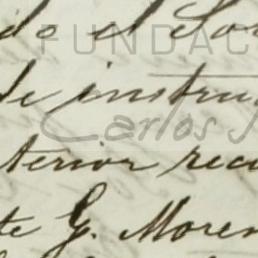 do el So
FUNDAC
de instru
Carlos
terior recu
te G. Moren